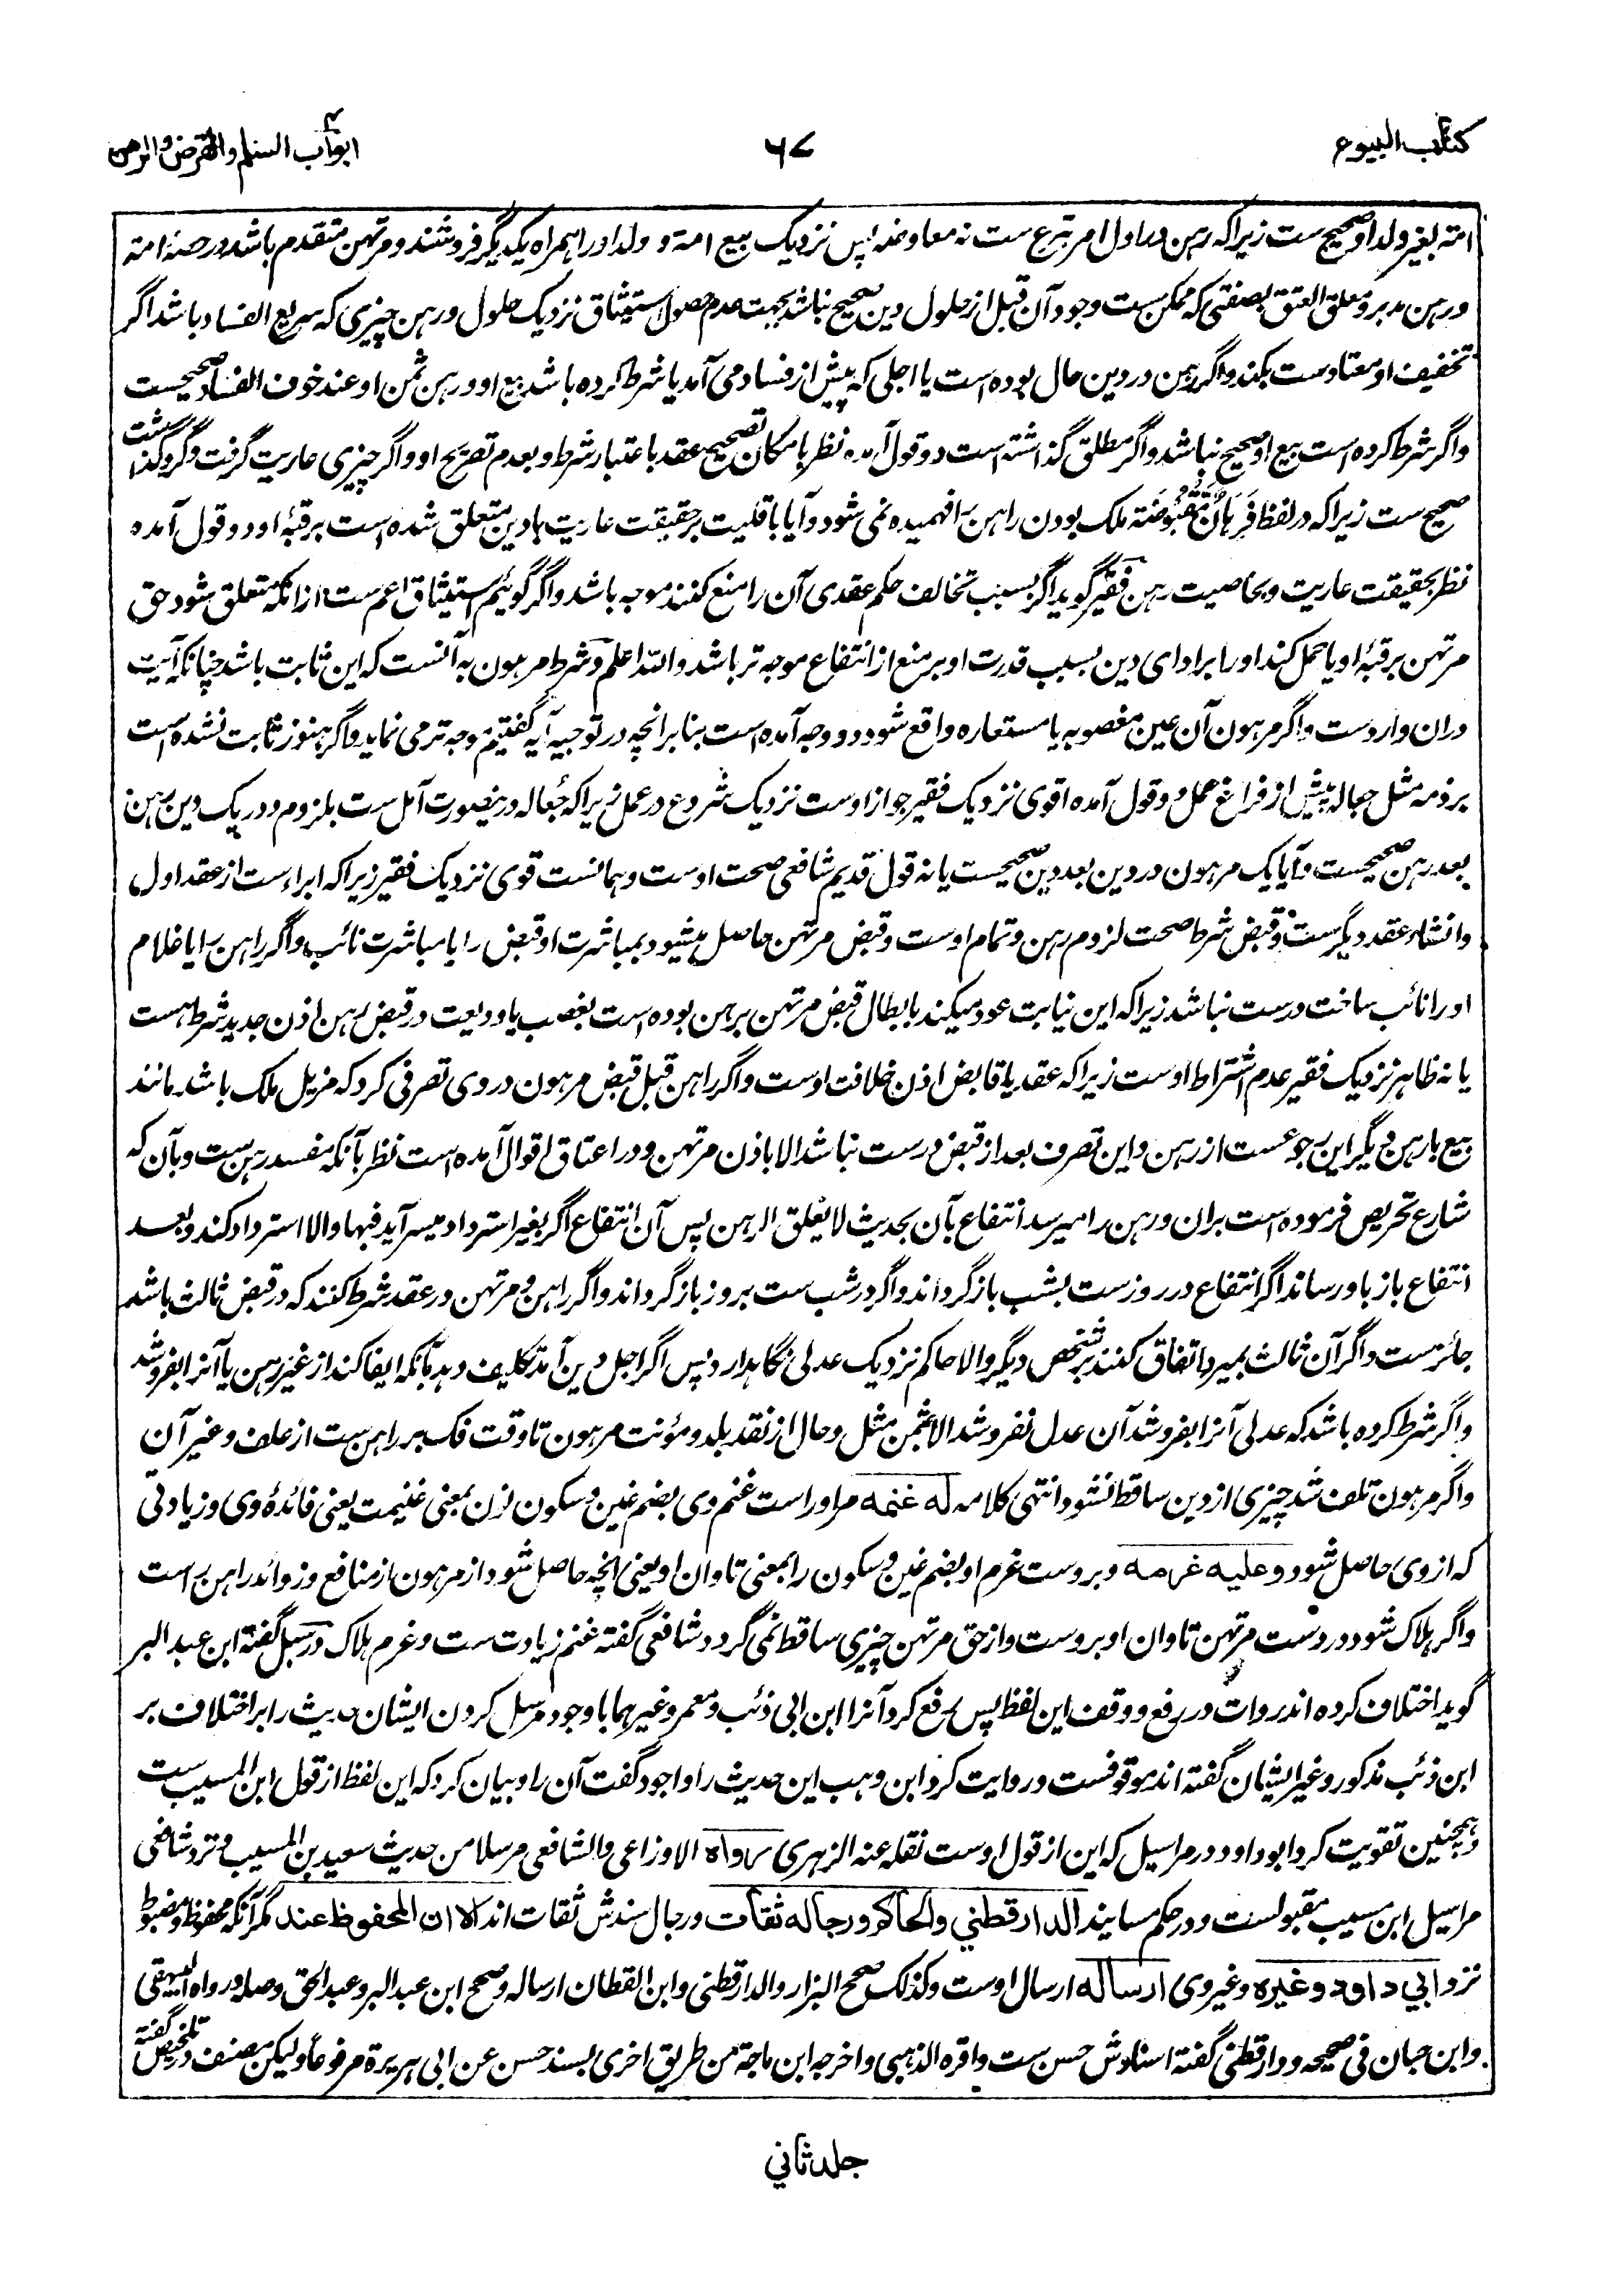 کتاب البیوع
۶۷
ابواب السلم والقرض والرهن
امته بغیر ولد او صحیح ست زیراکه رهن در اول امر تبرع ست نه معاوضه پس نزدیک بیع امة و ولد او را همراه یکدیگر فروشند و مرتهن متقدم باشد در حصۂ امة
و رهن مدبر و معلق العتق بصفتی که ممکن ست وجود آن قبل از حلول دین صحیح نباشد بجهت عدم حصول استیثاق نزدیک حلول و رهن چیزی که سریع الفساد باشد اگر
تخفیف او معتادست بکند و اگر رهن در دین حال بوده است یا اجلی که پیش از فساد می آمد یا شرط کرده باشد بیع او و رهن ثمن او عند خوف الفساد صحیحست
و اگر شرط کرده است بیع او صحیح نباشد و اگر مطلق گذاشته است دو قول آمده نظر بامکان تصحیح عقد باعتبار شرط و بعدم تصریح او و اگر چیزی عاریت گرفت و گرو گذاشت
صحیح ست زیراکه در لفظ فَرِهَانٌ مَقْبُوضَة ملک بودن راهن را فهمیده نمی شود و آیا باقلیت بر حقیقت عاریت یا دین متعلق شده است برقبۂ او دو قول آمده
نظر بحقیقت عاریت و بخاصیت رهن فقیر گوید اگر بسبب تخالف حکم عقدی آن را منع کنند موجه باشد و اگر گوئیم استیثاق اعم ست از انکه متعلق شود حق
مرتهن برقبۂ او یا حمل کند او را بر ادای دین بسبب قدرت او بر منع از انتفاع موجه تر باشد والله اعلم و شرط مرهون به آنست که این ثابت باشد چنانکه آیت
دران واردست و اگر مرهون آن عین مغصوبه یا مستعاره واقع شود دو وجه آمده است بنا بر انچه در توجیه آیه گفتیم موجه تر می نماید و اگر هنوز ثابت نشده است
بر ذمه مثل جعاله پیش از فراغ عمل دو قول آمده اقوی نزدیک فقیر جواز اوست نزدیک شروع در عمل زیراکه جُعاله درینصورت آمل ست بلزوم و در یک دین رهن
بعد رهن صحیحست و آیا یک مرهون در دین بعد دین صحیحست یا نه قول قدیم شافعی صحت اوست و همانست قوی نزدیک فقیر زیراکه ابراءست از عقد اول
و انشاء عقد دیگرست و قبض شرط صحت لزوم رهن و تمام اوست و قبض مرتهن حاصل میشود بمباشرت او قبض را یا مباشرت نائب و اگر راهن را یا غلام
او را نائب ساخت درست نباشد زیراکه این نیابت عود میکند بابطال قبض مرتهن بر رهن بوده است بغصب یا ودیعت در قبض رهن اذن جدید شرط هست
یا نه ظاهر نزدیک فقیر عدم اشتراط اوست زیراکه عقد با قابض اذن خلافت اوست و اگر راهن قبل قبض مرهون در وی تصرفی کرد که مزیل ملک باشد مانند
بیع یا رهن دیگر این رجوعست از رهن و این تصرف بعد از قبض درست نباشد الا باذن مرتهن و در اعتاق اقوال آمده است نظر بآنکه مفسد رهن ست و بآن که
شارع تحریص فرموده است بران و رهن را میرسد انتفاع بآن بحدیث لا یغلق الرهن پس آن انتفاع اگر بغیر استرداد میسر آید فبها والا استرداد کند و بعد
انتفاع باز باو رساند اگر انتفاع در روزست بشب بازگرداند و اگر در شب ست بروز بازگرداند و اگر راهن و مرتهن در عقد شرط کنند که در قبض ثالث باشد
جائزست و اگر آن ثالث بمیرد اتفاق کنند بر شخص دیگر والا حاکم نزدیک عدلی نگاهدارد پس اگر اجل دین آمد تکلیف دهد بآنکه ایفا کند از غیر رهن یا آنرا بفروشد
و اگر شرط کرده باشد که عدلی آنرا بفروشد آن عدل نفروشد الا بثمن مثل و حال از نقد بلد و مؤنت مرهون تا وقت فک بر راهن ست از علف و غیر آن
و اگر مرهون تلف شد چیزی از دین ساقط نشود انتهی کلامه له غنمه مر او راست غنم وی بضم غین و سکون نون بمعنی غنیمت یعنی فائدۂ وی و زیادتی
که از وی حاصل شود و علیه غرمه و بروست غرم او بضم غین و سکون را بمعنی تاوان او یعنی انچه حاصل شود از مرهون از منافع و زوائد راهن راست
و اگر هلاک شود در دست مرتهن تاوان او بروست و از حق مرتهن چیزی ساقط نمی گردد شافعی گفته غنم زیادت ست و غرم هلاک در سبل گفته ابن عبد البر
گوید اختلاف کرده اند روات در رفع و وقف این لفظ پس رفع کرد آنرا ابن ابی ذئب و معمر و غیرهما با وجود مرسل کردن ایشان حدیث را بر اختلاف بر
ابن ذئب مذکور و غیر ایشان گفته اند موقوفست و روایت کرد ابن وهب این حدیث را و اجود گفت آن را و بیان کرد که این لفظ از قول ابن المسیب ست
و همچنین تقویت کرد ابو داود در مراسیل که این از قول اوست نقله عنه الزهری رواه الاوزاعی والشافعی مرسلا من حدیث سعید بن المسیب و نزد شافعی
مراسیل ابن مسیب مقبولست و در حکم مسانید الدارقطني والحاکم ورجاله ثقات و رجال سندش ثقات اند الا ان المحفوظ عند مگر آنکه محفوظ و مضبوط
نزد ابي داود وغیره و غیر وی ارساله ارسال اوست و کذلک صحح البزار والدارقطنی وابن القطان ارساله وصحح ابن عبد البر وعبد الحق وصله ورواه البیهقی
وابن حبان فی صحیحه و دارقطنی گفته اسنادش حسن ست واقره الذهبی واخرجه ابن ماجة من طریق اخری بسند حسن عن ابی هریرة مرفوعا ولیکن مصنف در تلخیص گفته
جلد ثاني